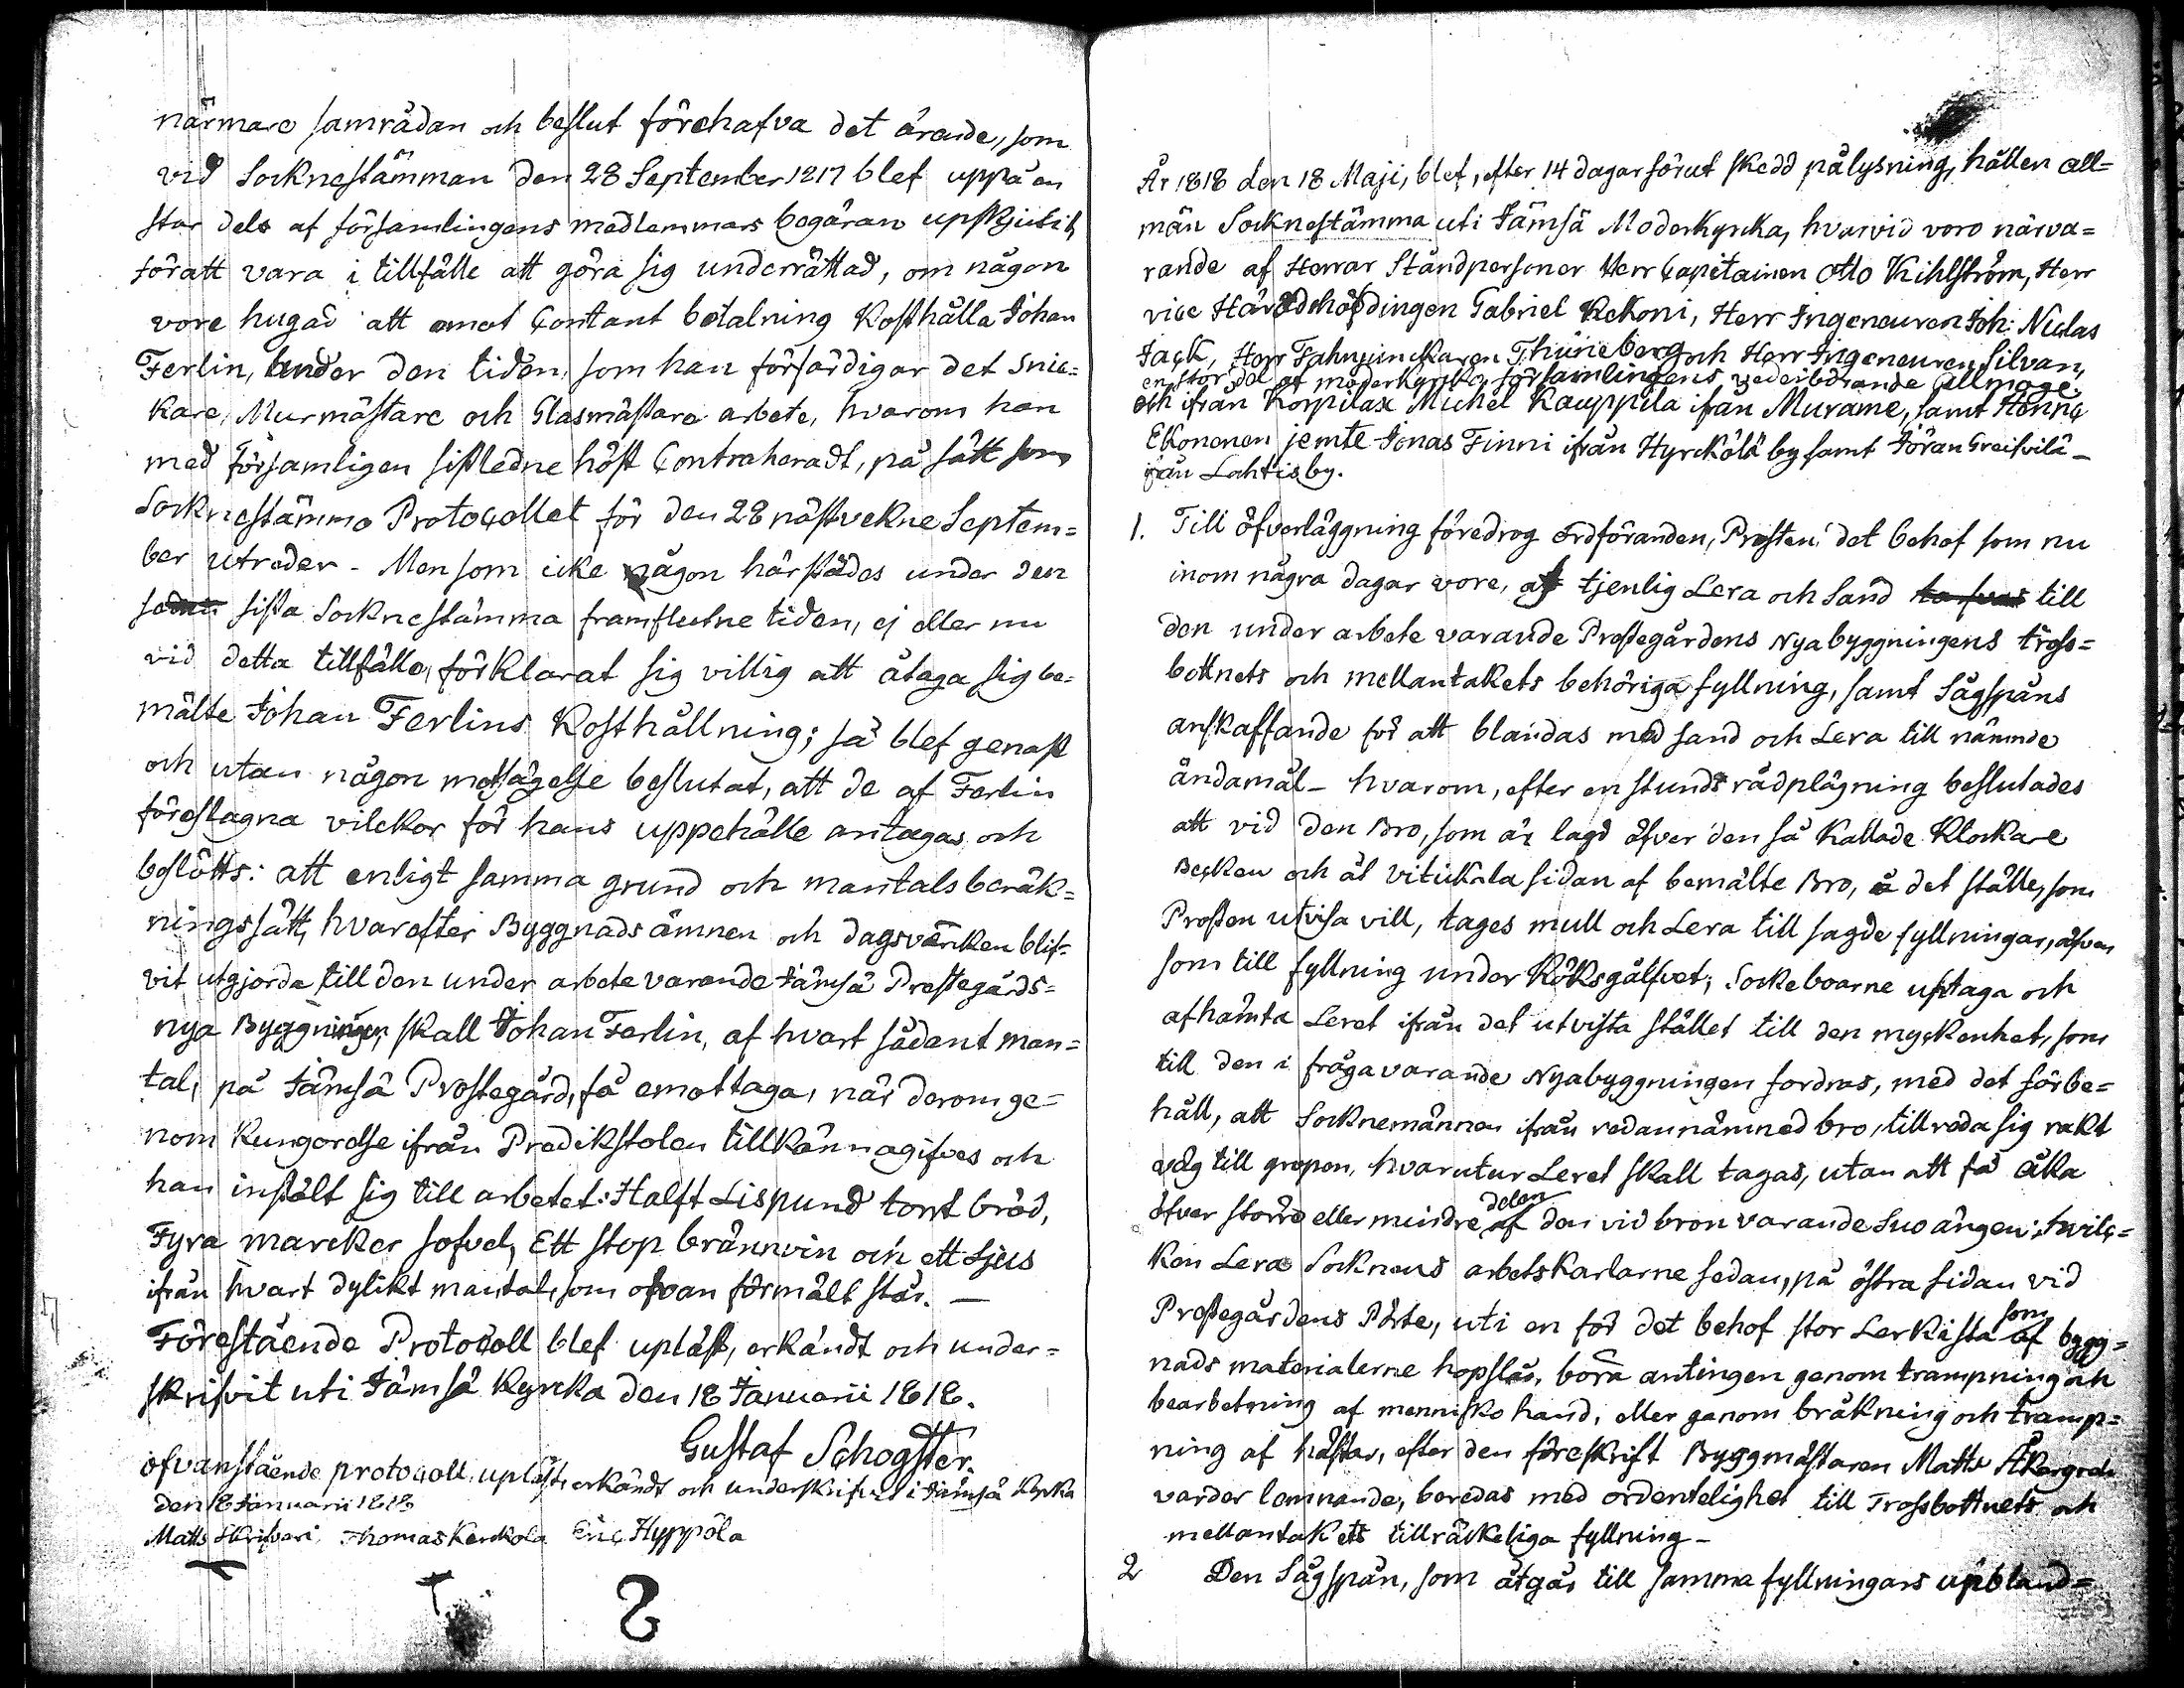 närmare samrådan och beslut förehafva det ärande, som
vid Socknestämman den 28 September 1817 blef uppå en
stor dels af församlingens medlemmars begäran upskjutit,
för att vara i tillfälle att göra sig underrättad, om någon
vore hugad att emot Contant betalning Kosthålla Johan
Ferlin, under den tiden, som han förfärdigar det Snic=
kare, Murmästare och Glasmästare arbete, hvarom han
med församligen sistledne höst Contraheradt, på sätt som
Socknestämmo Protocollet för den 28 nästvekne Septem=
ber utreder - Men som icke någon härstädes under den
sista Socknestämma framflutne tiden, ej eller nu
vid detta tillfälle, förklarat sig villig att åtaga sig be=
mälte Johan Ferlins Kosthållning; så blef genast
och utan någon motsägelse beslutat, att de af Ferlin
föreslagna vilckor för hans uppehälle antagas och
beslöts: att enligt samma grund och mantals beräk=
ningssätt, hvarefter Byggnads ämnen och dagsvärcken blif-
vit utgjorda till den under arbete varande Jämsä Prostegårds=
nya Byggningen, skall Johan Ferlin, af hvart sådant man=
tal, på Jämsä Prostegård, få emottaga, när derom ge=
nom Kungörelse ifrån Predikstolen tillkännagifves och
han instält sig till arbetet: Halft Lispund tort bröd,
Fyra marcker sofvel, Ett stop brännvin och ett Ljus
ifrån hvart dylikt mantal, som ofvan förmält står. —
Förestående Protocoll blef upläst, erkändt och under=
skrifvit uti Jämsä Kyrcka den 18 Januarii 1818.
Gustaf Schogster.
ofvanstående protocoll upläst, erkändt och underskrifvit i Jämsä Kyrka
den 18 Januarii 1818
Matts Skrifvari Thomas Kerckola Eric Hyppölä
8
År 1818 den 18 Maji, blef, efter 14 dagar förut skedd pålysning, hållen all=
män Socknestämma uti Jämsä Moderkyrcka, hvarvid voro närva=
rande af Herrar Ståndpersoner Herr Capitainen Otto Kihlström, Herr
vice Häradshöfdingen Gabriel Kekoni, Herr Ingeneuren Joh: Niclas
Jack, Herr Fahnjunckaren Thuneberg och Herr Ingeneuren Silvan,
en stor del af moderkyrko församlingens vederbörande Allmoge.
och ifrån Korpilax Michel Kauppila ifrån Murame, samt Hening
Ekonenen jemte Jonas Finni ifrån Hyrckölä by samt Jöran Greisvilä -
ifrån Lahtis by.
1. Till öfverläggning föredrog ordföranden, Prosten det behof som nu
inom några dagar vore, af tjenlig Lera och Sand till
den under arbete varande Prostegårdens Nyabyggningens tross=
bottnets och mellantakets behöriga fyllning, samt Sågspåns
anskaffande för att blandas med sand och Lera till nämnde
ändamål - hvarom, efter en stunds rådplägning beslutades
att vid den Bro, som är lagd öfver den så kallade Klockare
Becken och åt vitickala sidan af bemälte Bro, å det ställe, som
Prosten utvisa vill, tages mull och Lera till sagde fyllningar, äfven
som till fyllning under Köksgålfvet; Sockeboarne uptaga och
afhämta Leret ifrån det utvista stället till den myckenhet, som
till den i fråga varande Nyabyggningen fordras, med det förbe=
håll, att Socknemännen ifrån redannämned bro, tillreda sig rakt
väg till gropen, hvarutur Leret skall tagas, utan att få åka
öfver större eller mindre delen af den vid bron varande Suo ängen; hvilc=
ken Lera Socknens arbetskarlarne sedan, på östra sidan vid
Prostegårdens Pörte, uti en för det behof stor Lerkista som af bygg=
nads materialerne hopslås, böra antingen genom trampning och
bearbetning af mennisko hand, eller genom bråkning och tramp=
ning af hästar, efter den föreskrift Byggmästaren Matts Åkergren
varder lemnande, beredas med ordentelighet till Trossbottnets och
mellantakets tillräckeliga fyllning -
2 Den Sågspån, som åtgår till samma fyllningars upbland=